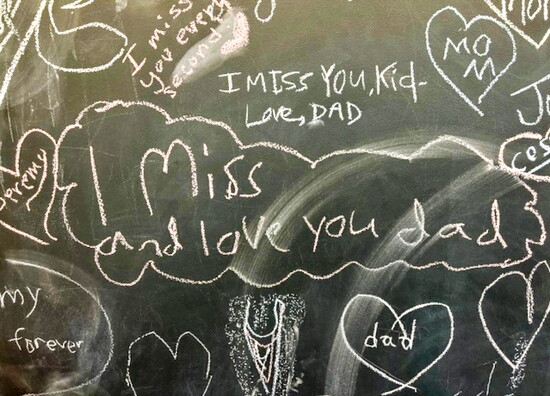 I miss
you every
second
I MISS YOU, Kid-
Love, DAD
MOM
I Miss
and love you dad
my
forever
dad